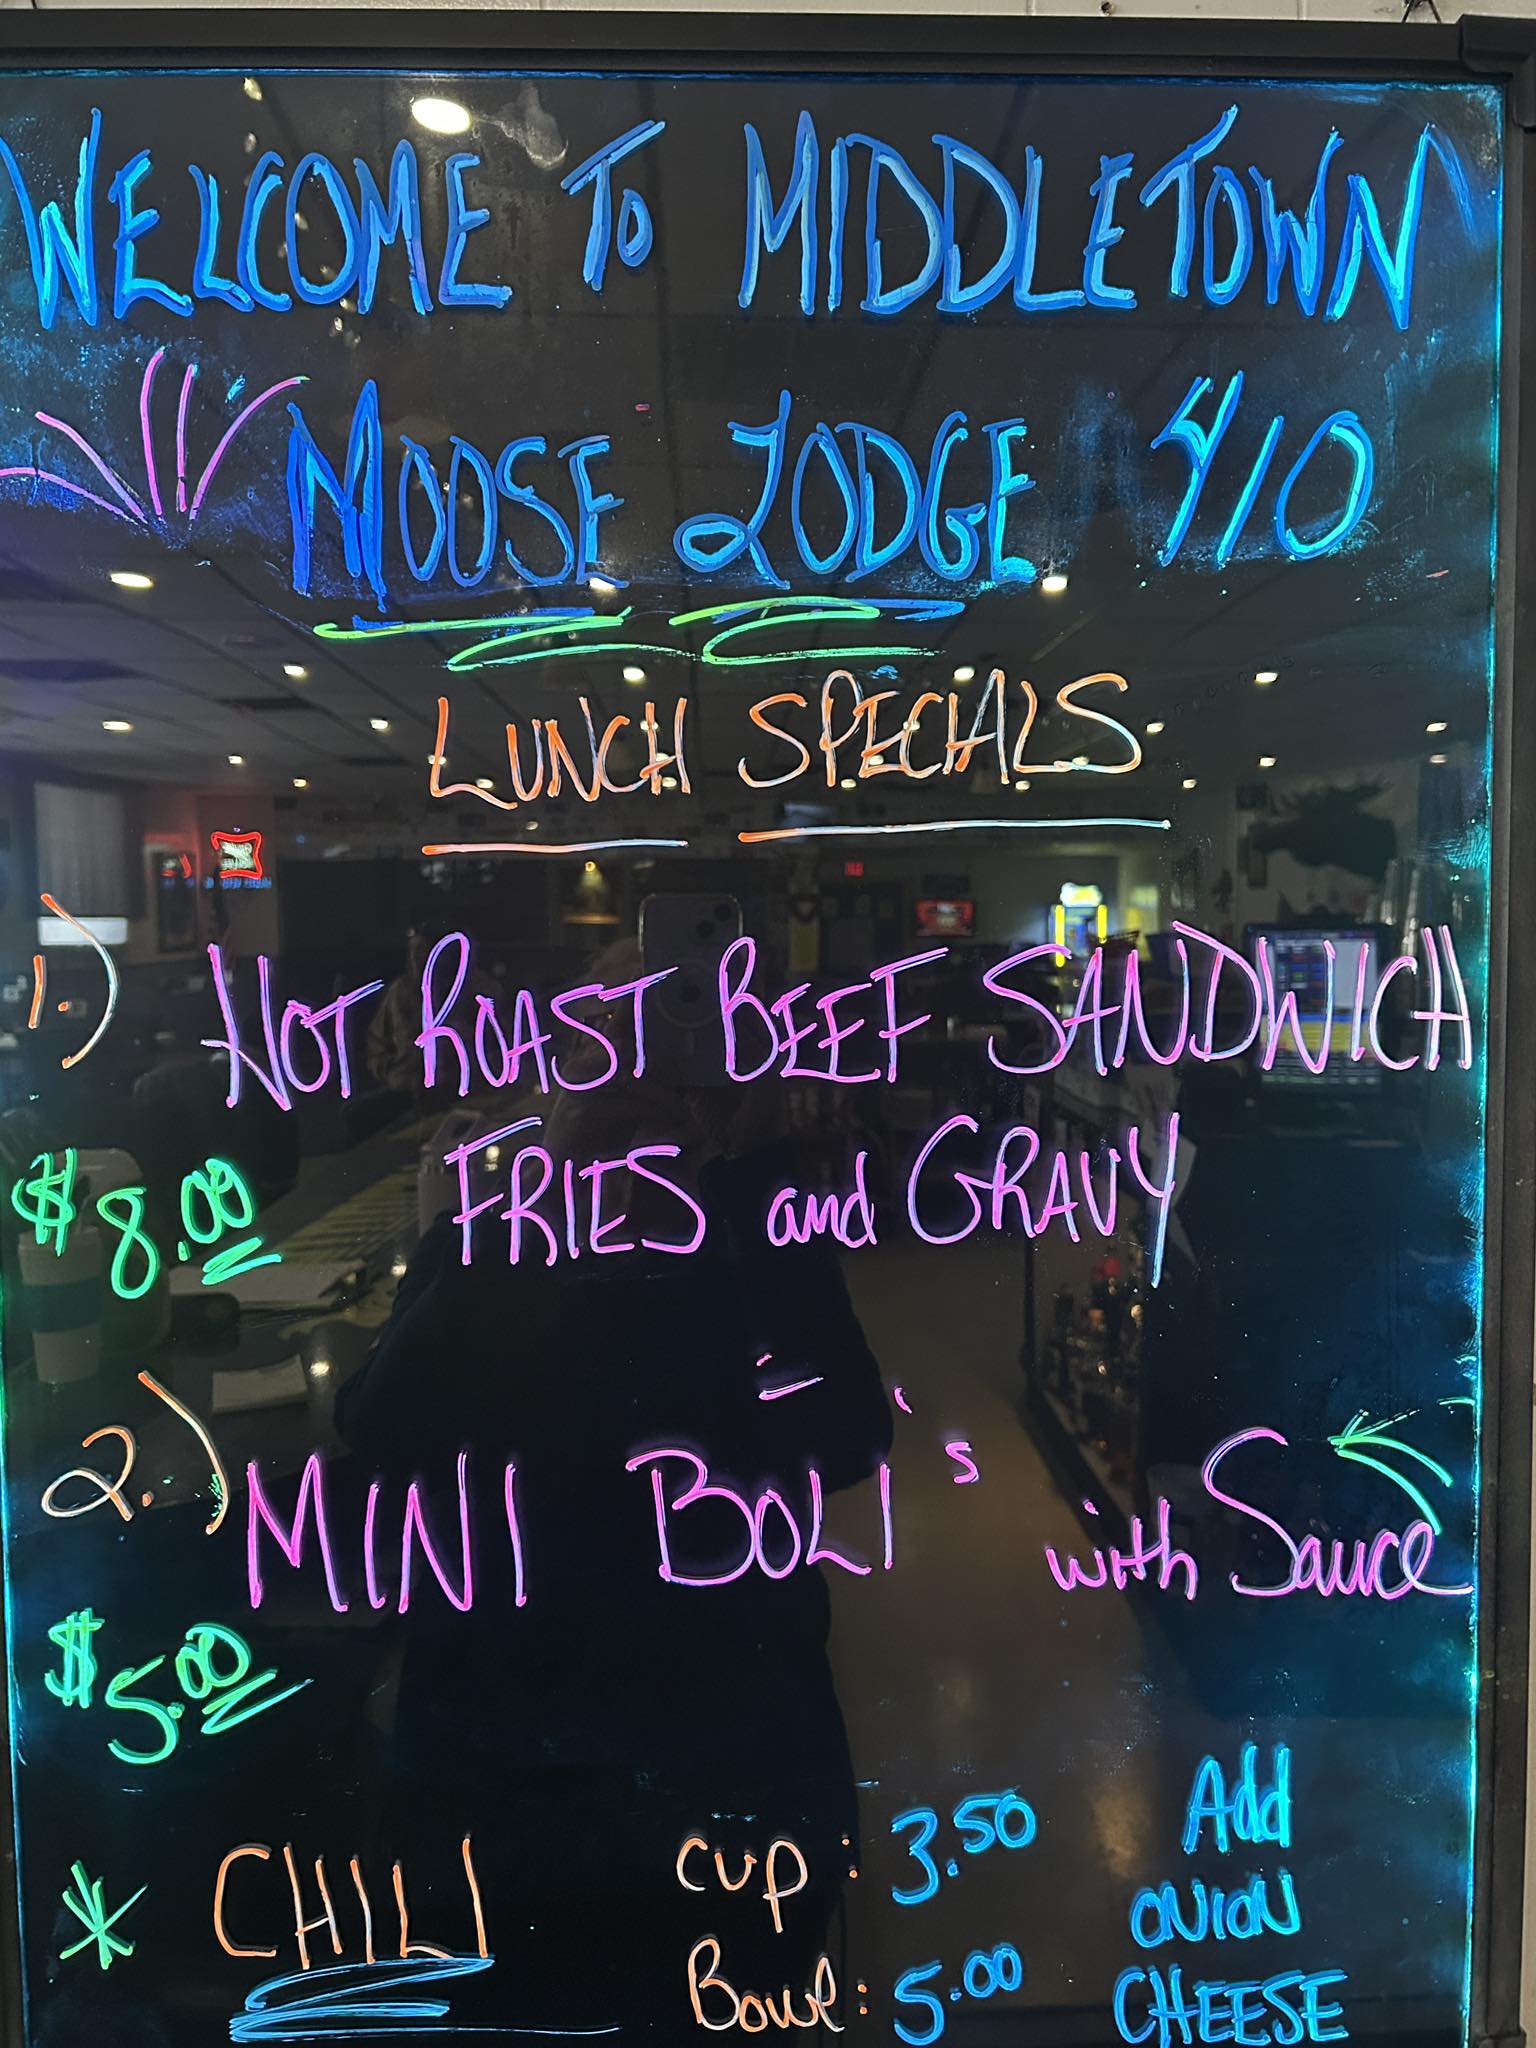 WELCOME TO MIDDLETOWN
MOOSE LODGE 410
LUNCH SPECIALS
1.) HOT ROAST BEEF SANDWICH
$8.00 FRIES and GRAVY
2.) MINI BOLI's with Sauce
$5.00
* CHILI cup: 3.50 Add
ONION
Bowl: 5.00 CHEESE